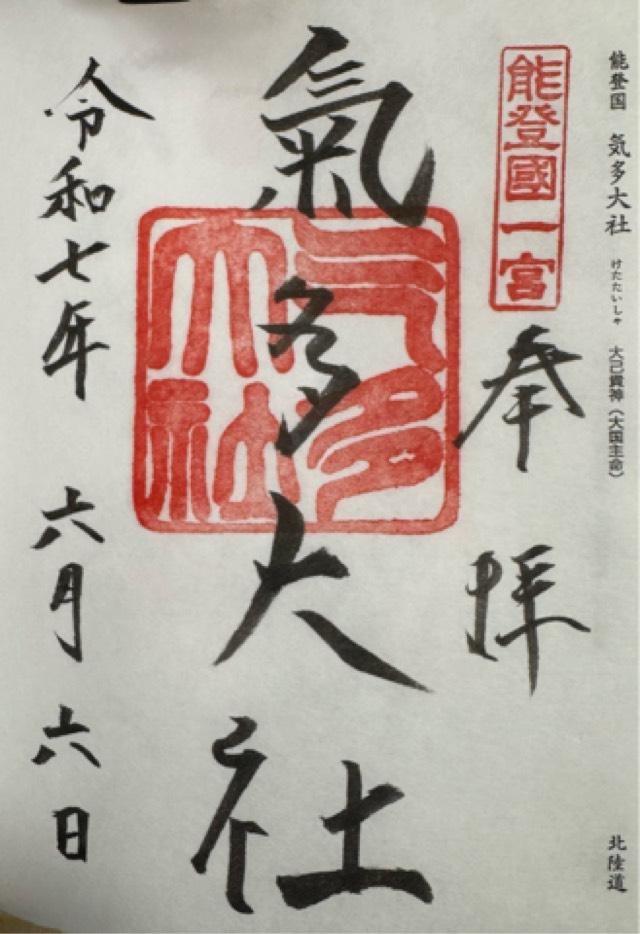 能登国 気多大社 けたたいしゃ 大己貴神（大国主命） 北陸道
能登國一宮
奉拝
氣多大社
気多大社
令和七年 六月 六日